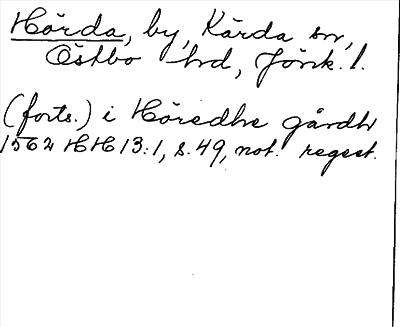 Hörda, by, Kärda sn,
Östbo hd, Jönk. l.
(forts.) i Höredhe gårdh
1562 HH 13:1, s. 49, not. regest.